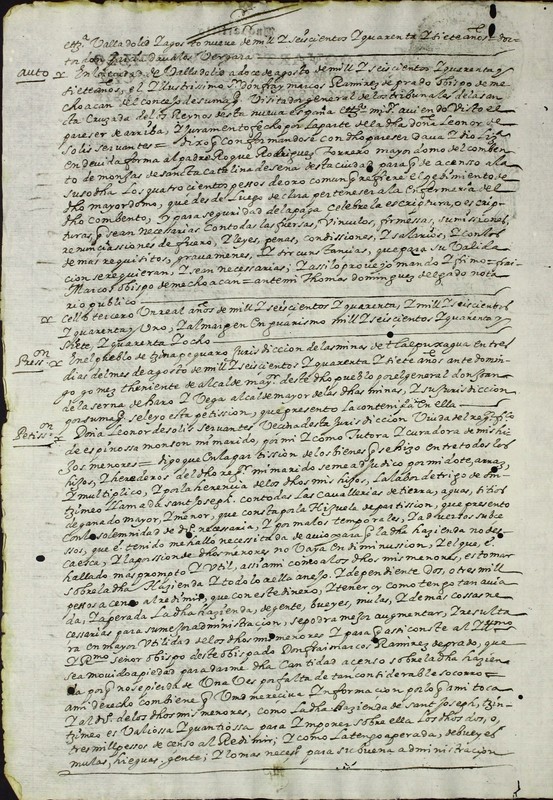 etta. Valladolid y agosto nueve de mill y seiscientos y quarenta y siete años = doc
tado Davalos Vergara
auto En la ciudad de Valladolid a doce de agosto de mill y seiscientos y quarenta y
siete años, el Illustrissimo Sr Don fray marcos Ramirez de prado obispo de me
choacan del consejo de su mag. Visitador general de los tribunales de la san
ta Cruzada de los Reynos de esta nueva españa etta. mi Sr aviendo visto el
pareser de arriba, y juramento fecho por la parte de la dha doña Leonor de
solis servantes = Dixo q conformandose con dho pareser dava y dio lisᵃ
en devida forma al padre Roque Rodriguez Torrero mayordomo del comben
to de monjas de sancta catalina de sena desta ciudad para q de a censo a la
susodha los quatrocientos pesos de oro comun q refiere el pedimiento de
dho mayordomo, que desde luego declara pertenecer a la enfermeria del
dho combento, y para seguridad de la paga celebre la escriptura, o escrip
turas q sean necesarias con todas las fuersas, vinculos, firmessas, sumissiones,
renunciassiones de fuero, y leyes, penas, condissiones, y salarios, y con los
demas requisitos, gravamenes, y circunstancias, que para su valida
cion se requieran, y sean necessarias; y assi lo proveyo mando y firmo = fray
Marcos obispo de mechoacan = ante mi Thomas dominguez delgado nota
rio publico
sello tercero Un real años de mill y seiscientos y quarenta, y mill y seiscientos
y quarenta y uno, y al margen en guarismo mill y seiscientos y quarenta y
siete, y quarenta y ocho
Pressᵒⁿ En el pueblo de tzinapequaro jurisdiccion de las minas de tlalpuxagua en tres
dias del mes de agosto de mill y seiscientos y quarenta y siete años ante domin
go gomez theniente de alcalde mayʳ deste dho pueblo por el general don
de la serna de haro y Vega alcalde mayor de las dhas minas, y su jurisdiccion
por su mag. se leyo esta petission, que presento la contenida en ella
Petissᵒⁿ Doña Leonor de solis servantes Vecina desta jurisdiccion Viuda de
de espinossa monson mi marido, por mi y como tutora y curadora de mis hi
jos menores = digo que en la partission de los bienes q se hizo entre todos los
hijos, y herederos del dho mi marido se me adjudico por mi dote, arras,
y multiplico, y por la herencia de los dhos mis hijos, la labor de trigo de
tzimeo llamada sant Joseph, con todas las cavallerias de tierra, aguas, sitios
de ganado mayor, y menor, que consta por la Hijuela de partission, que presento
con la solemnidad de dro necessaria, y por malos temporales, y adversos subse
ssos, que e tenido me hallo necesitada de avios para q la dha hazienda no des
caesca, y la possission de dhos menores no vaya en diminussion, y el que e
hallado mas prompto y util, assi a mi como a los dhos mis menores, es tomar
sobre la dha Hazienda y todo lo a ella anejo, y dependiente dos, o tres mill
pesos a censo al redimir, que con este dinero, y tener yo como tengo tan avia
da, y aperada la dha hazienda, de gente, bueyes, mulas, y demas cossas ne
cessarias para su mejor administracion, se podra mejor augmentar, y resulta
ra en mayor utilidad de los dhos mis menores y para q assi conste al Illmo
y Rmo señor obispo deste obispado Don fray marcos Ramirez de prado, que
sea movido a piedad para darme dha cantidad a censo sobre la dha hazien
da por q no se pierda de una vez por falta de tan considerable socorro =
a mi derecho combiene q Vmd me reciva Informacion por lo q a mi toca
y al dro de los dhos mis menores, como la dha hazienda de sant Joseph, tzin
tzimeo es valiossa y quantiossa para Imponer sobre ella los dhos dos, o,
tres mill pessos de censo al Redimir; y como la tengo aperada, de bueyes
mulas, hieguas, gente, y lo mas necesᵒ para su buena administracion